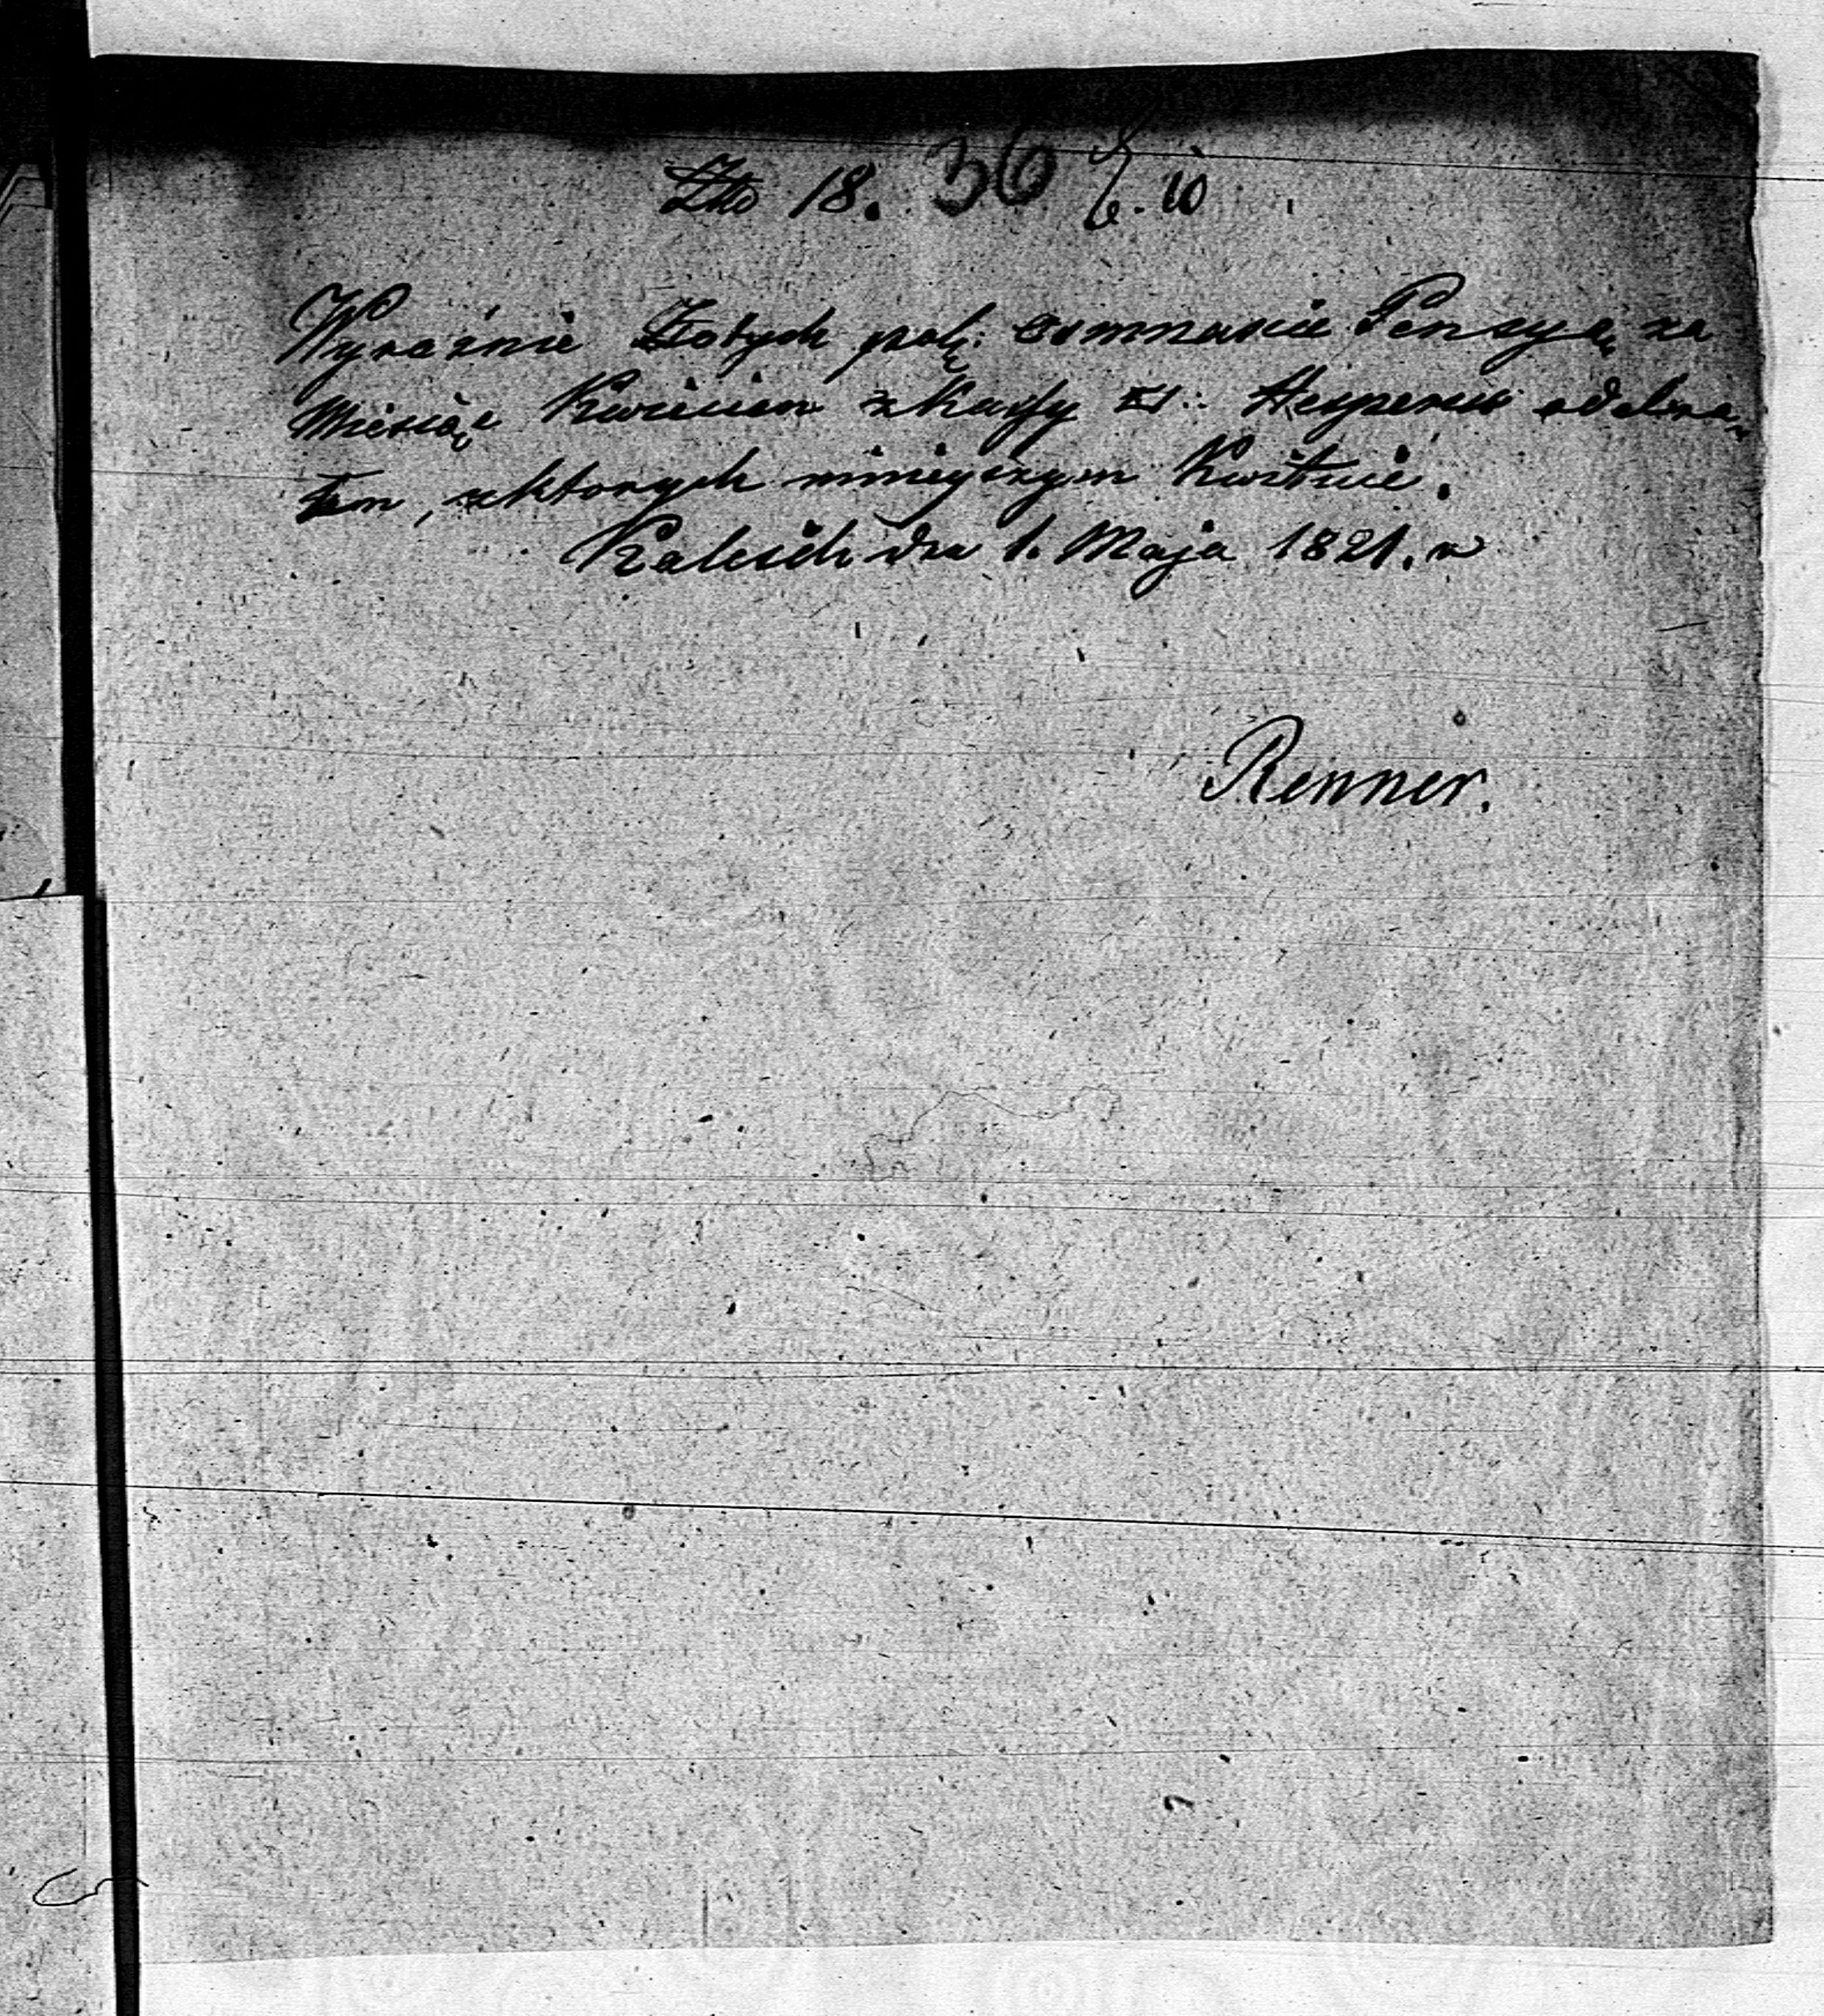 Zło 18. 36 b. 10
Wyraźnie Złotych pol: osmnascie Pensyę za
Miesiąc Kwiecien z Kassy □: Hesperus odebra-
łem, z ktorych niniejszym Kwituie.
Kalisch dn 1. Maja 1821. r
Renner.